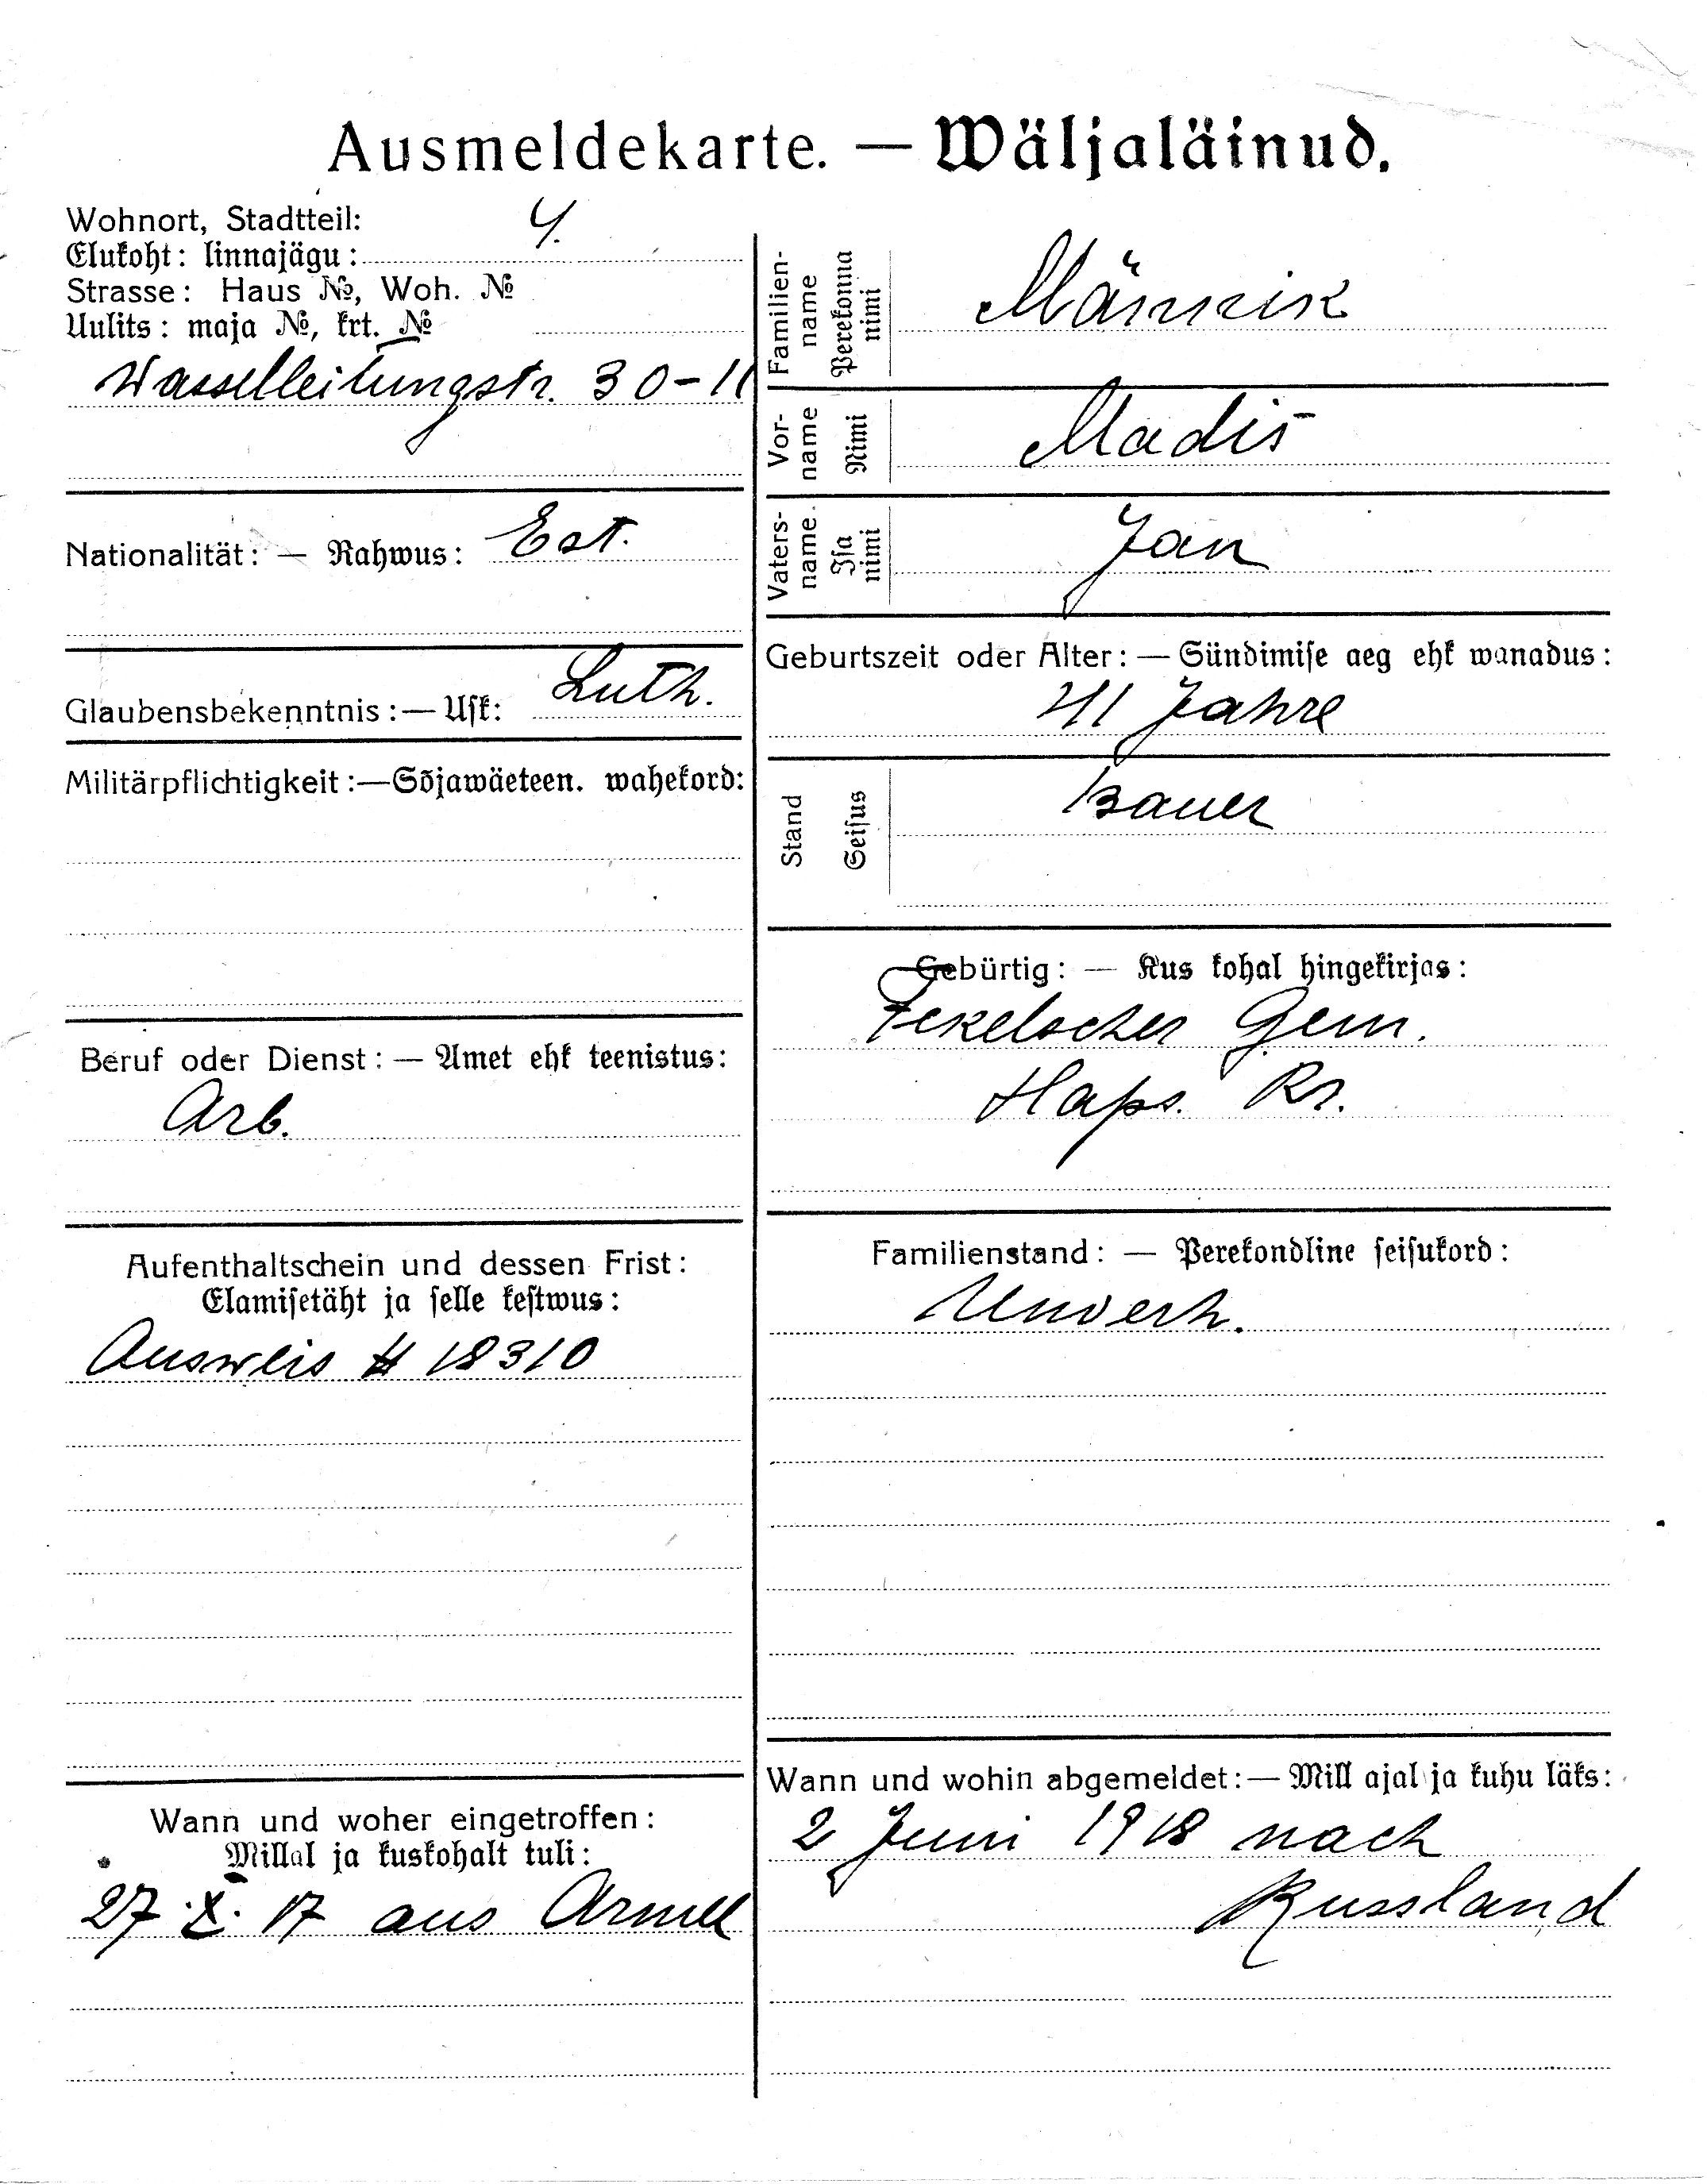 Ausmeldekarte. — Wäljaläinud.
Wohnort, Stadtteil:
Elukoht: linnajägu: 4.
Strasse: Haus №, Woh. №
Uulits: maja №, krt. №
Wasselleitungstr. 30-11
Nationalität: — Rahwus: Est.
Glaubensbekenntnis: — Usk: Luth.
Militärpflichtigkeit: — Sõjawäeteen. wahekord:
Beruf oder Dienst: — Amet ehk teenistus:
Arb.
Aufenthaltschein und dessen Frist:
Elamisetäht ja selle kestwus:
Ausweis # 18310
Wann und woher eingetroffen:
Millal ja kuskohalt tuli:
27.X.17 aus Armee
Familien-
name
Perekonna
nimi
Männik
Vor-
name
Nimi
Madis
Vaters-
name
Isa
nimi
Jan
Geburtszeit oder Alter: — Sündimise aeg ehk wanadus:
41 Jahre
Stand
Seisus
Bauer
Gebürtig: — Kus kohal hingekirjas:
Gem.
Haps. Kr.
Familienstand: — Perekondline seisukord:
Unverh.
Wann und wohin abgemeldet: — Mill ajal ja kuhu läks:
2 Juni 1918 nach
Russland